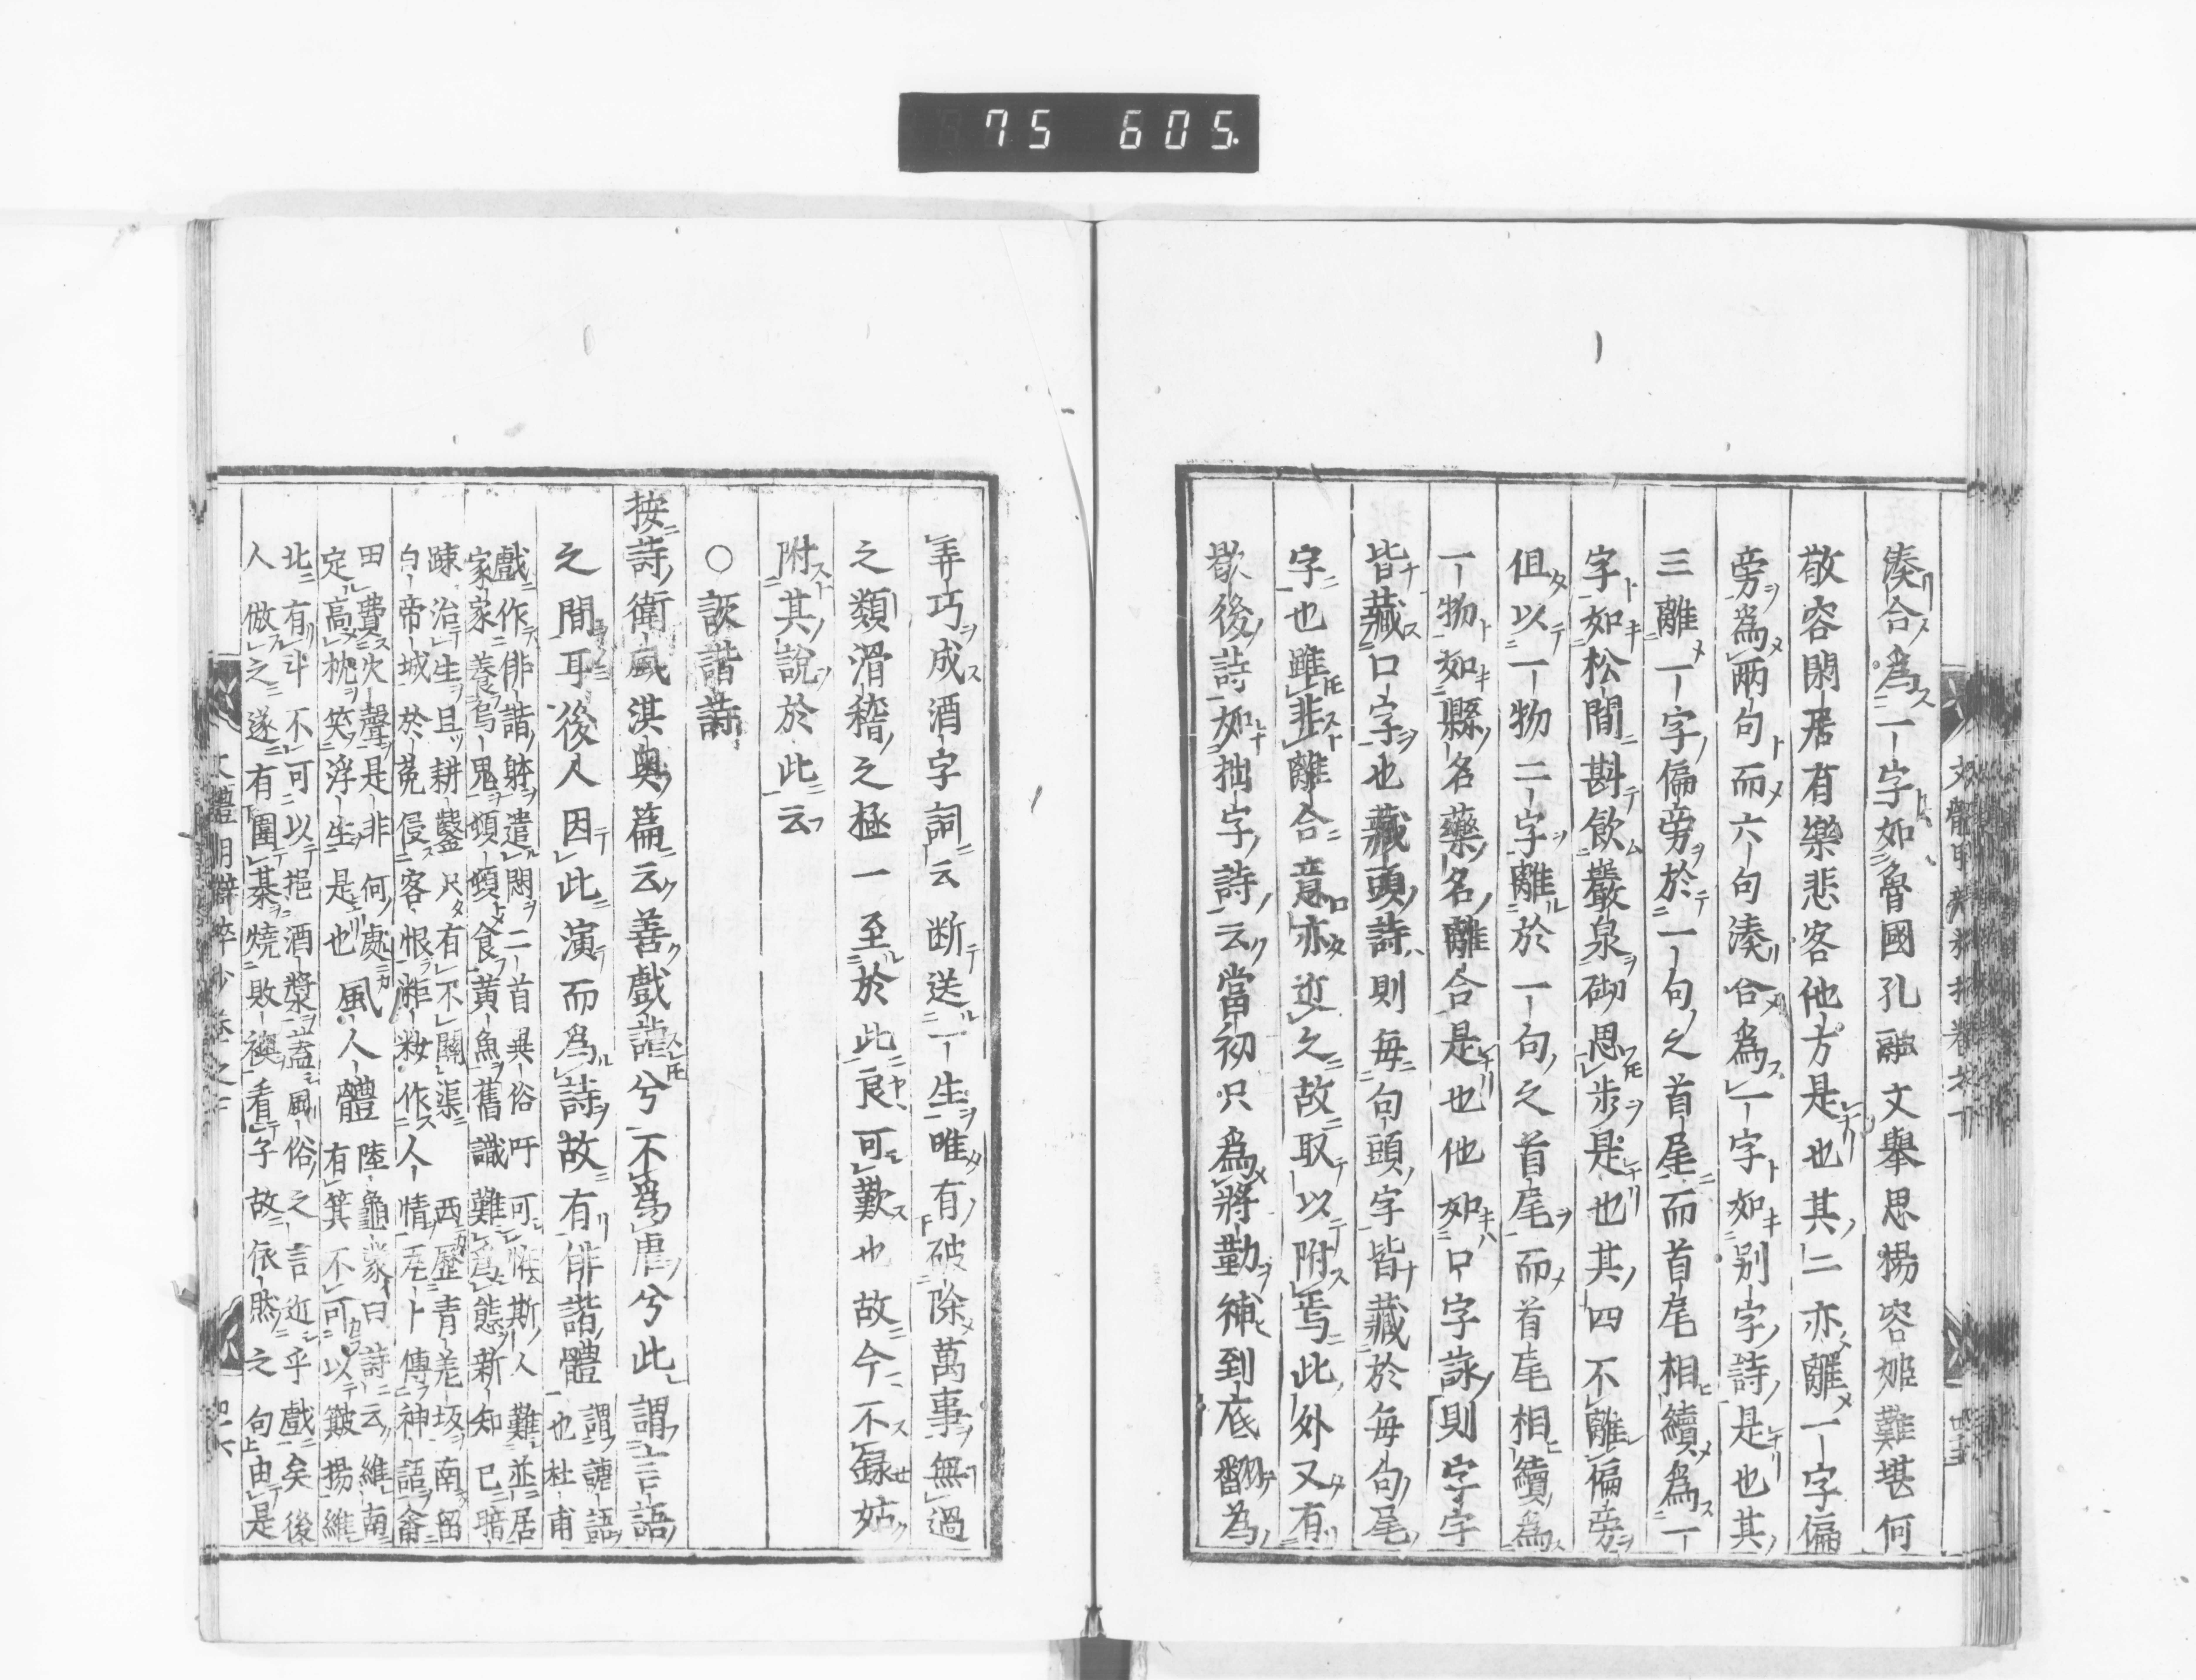 75 605.
湊合爲一字如魯國孔融文舉思楊容姬難堪何
敬容閑居有樂悲客他方是也其二亦離一字偏
旁爲兩句而六句湊合爲一字如別字詩是也其
三離一字偏旁於一句之首尾而首尾相續爲一
字如松間斟飲巖泉砌思步是也其四不離偏旁
但以一物二字離於一句之首尾而首尾相續爲
一物如縣名藥名離合是也他如口字詠則字字
皆藏口字也藏頭詩則每句頭字皆藏於每句尾
字也雖非離合意亦近之故取以附焉此外又有
歇後詩如拙字詩云當初只爲將勤補到底翻為
弄巧成酒字詞云断送一生唯有破除萬事無過
之類滑稽之極一至於此良可歎也故今不錄姑
附其說於此云
○詼諧詩
按詩衛風淇奥篇云善戲謔兮不爲虐兮此謂言語
之間耳後人因此演而爲詩故有俳諧體
謂謔語
也杜甫
戲作俳諧躰遣悶二首異俗吁可恠斯人難並居
家家養烏鬼頓頓食黃魚舊識難爲態新知已暗
踈治生且耕鑿只有不關渠 西歷青羌坂南留
白帝城於菟侵客恨粔籹作人情瓦卜傳神語畬
田費火聲是非何處
定高枕笑浮生是也
風人體
陸龜蒙曰詩云維南
有箕不可以簸揚維
北有斗不可以挹酒漿蓋風俗之言近乎戲矣後
人倣之遂有圍棊燒敗襖看子故依然之句由是
文體明辯粹抄卷之下